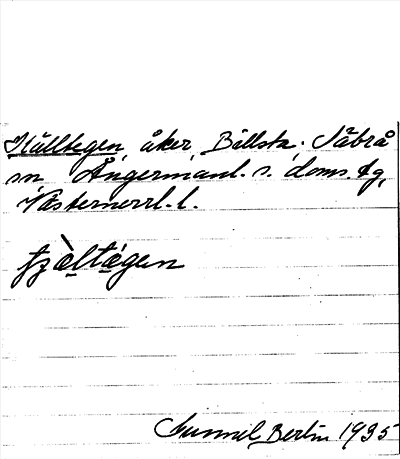 Källtegen, åker, Bällsta. Säbrå
sn Ångermanl. s. doms. tg,
Västernorrl. l.
Gunnel Bertin 1935